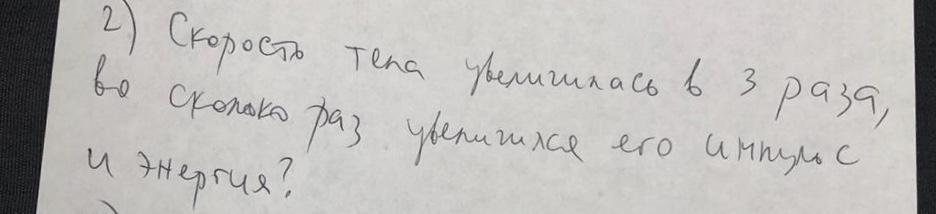 2) Скорость тела увеличилась в 3 раза,
во сколько раз увеличился его импульс
и энергия?